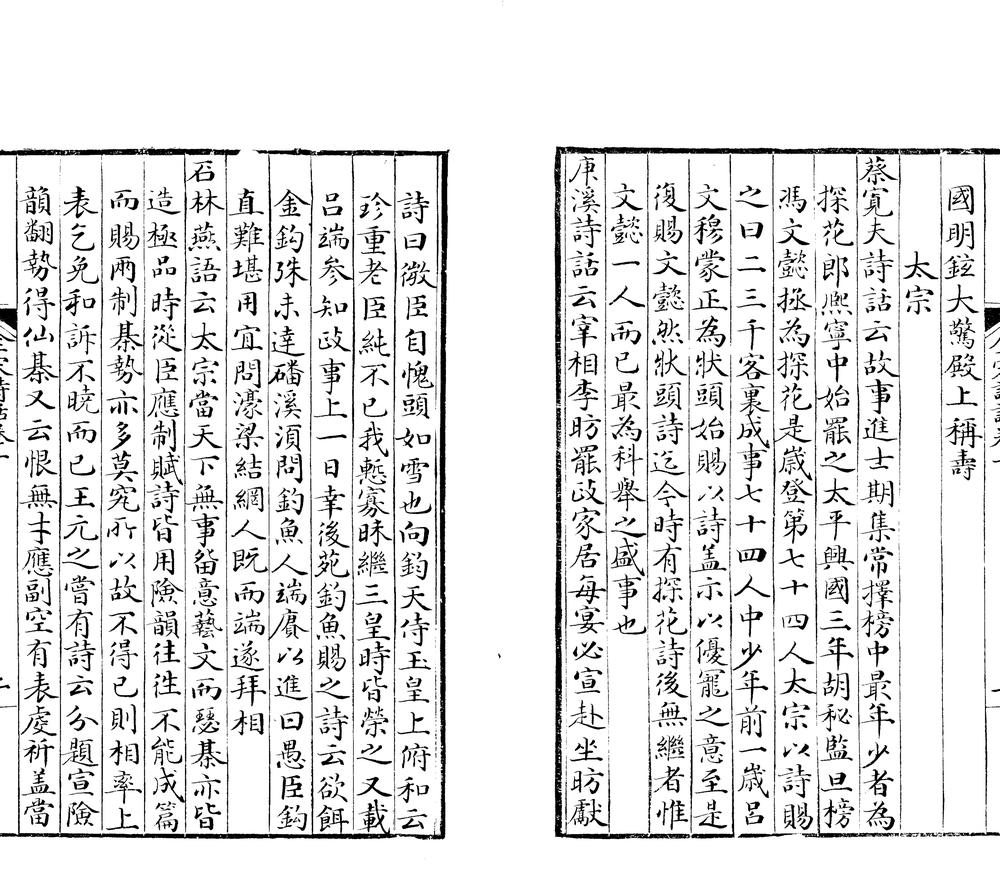 國明鉉大驚殿上稱壽
太宗
蔡寬夫詩話云故事進士期集常擇榜中最年少者為
探花郎熈寧中始罷之太平興國三年胡秘監旦榜
馮文懿拯為探花是歲登第七十四人太宗以詩賜
之曰二三千客裏成事七十四人中少年前一歲呂
文穆蒙正為狀頭始賜以詩盖示以優寵之意至是
復賜文懿然狀頭詩迄今時有探花詩後無繼者惟
文懿一人而已最為科舉之盛事也
庚溪詩話云宰相李昉罷政家居每宴必宣赴坐昉獻
詩曰微臣自愧頭如雪也向鈞天侍玉皇上俯和云
珍重老臣純不已我慙寡昧繼三皇時皆榮之又載
呂端叅知政事上一日幸後苑釣魚賜之詩云欲餌
金鈎殊未達磻溪湏問釣魚人端賡以進曰愚臣鈎
直難堪用宜問濠梁結網人既而端遂拜相
石林燕語云太宗當天下無事畱意藝文而琴棊亦皆
造極品時從臣應制賦詩皆用險韻往徃不能成篇
而賜兩制棊勢亦多莫究所以故不得已則相率上
表乞免和訴不曉而已王元之嘗有詩云分題宣險
韻翻勢得仙棊又云恨無才應副空有表虔祈盖當